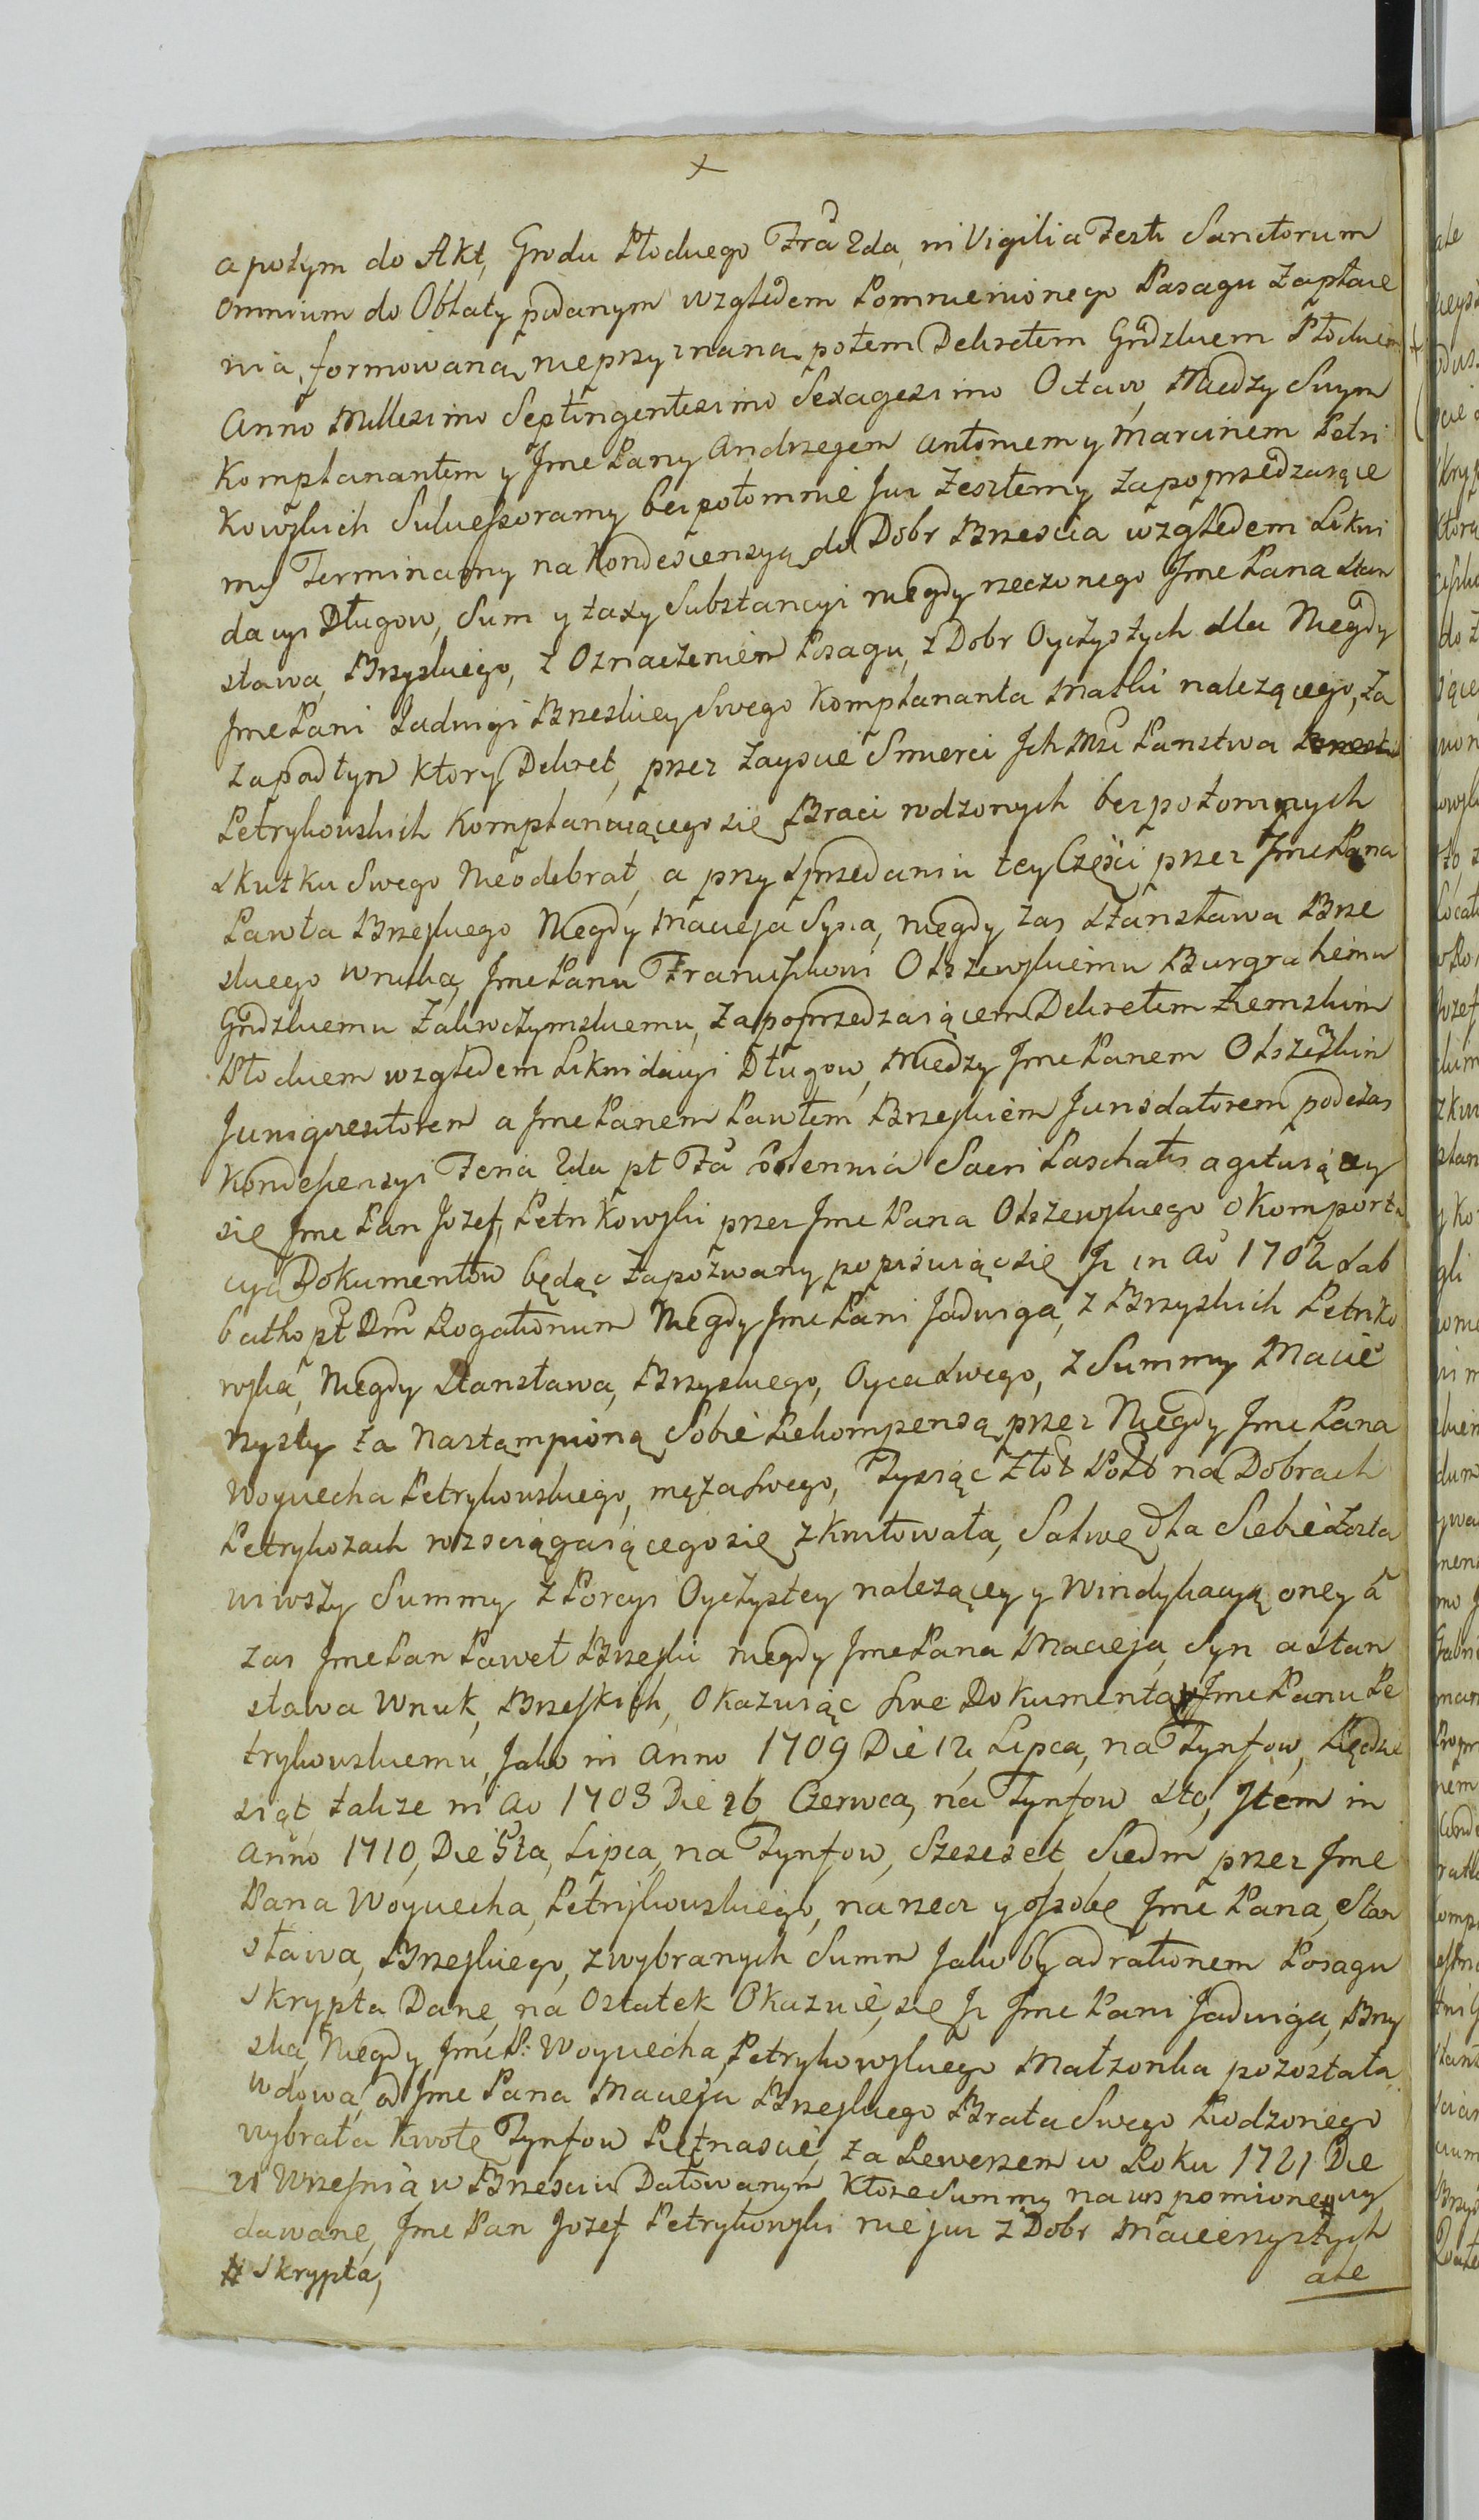 a potym do Akt, Grodu Płockiego Fra 2da, in Vigilia Festi Sanctorum
Omnium do Oblaty podanym względem Pomnienionego Posagu Zapłace
nia, formowaną, nieprzyznaną potem Dekretem Grodzkiem Płockiem
Anno Millesimo Septingentesimo Sexagesimo Octavo, Miedzy Swym
Komplanantem y Jme Pany Andrzejem Antoniem y Marcinem Petri
kowskich Sukcessoramy bez potomnie Juz Zeszłemy Zapoprzedzaiące
my Terminamy na Kondescensyą do Dobr Brzescia względem Likwi
dacyi Długow, Sum y taxy Substancyi niegdy rzeczonego Jme Pana Stan
sława, Brzyskiego, z Oznaczeniem Posagu, z Dobr Oyczystych dla Niegdy
Jme Pani Jadwigi Brzeskiey Swego Komplananta Matki nalezącego, Za
zapadłym ktory Dekret, przez Zayscie Smierci Jch Mci Panstwa
Petrykowskich Komplanuiącego się Braci rodzonych bez potomnych
Skutku Swego Nieodebrał, a przy Sprzedaniu tey Części przez Jme Pana
Pawła Brzeskiego Niegdy Macieja Syna, niegdy zas Stanisława Brze
skiego Wnuka, Jme Panu Franciszkowi Olszewskiemu Burgrabiemu
Grodzkiemu Zakroczymskiemu, Zapoprzedzaiącem Dekretem Ziemskim
Płockiem względem Likwidacyi Długow, Miedzy Jme Panem Olszewskim
Jurisquesitorem a Jme Panem Pawłem Brzeskiem Jurisdatorem podczas
Kondescensyi Feria 2da pt Fa Solennia Sacri Paschatis agituiącey
się Jme Pan Jozef, Petrikowski przez Jme Pana Olszewskiego o Komporta
cyą Dokumentow będąc Zapozwany popisuiąc się Jz in Ao 1702 Sab
batho pt Dm Rogationum Niegdy Jme Pani Jadwiga, z Brzyskich Petriko
wska, Niegdy Stansława, Brzyskiego, Oyca Swego, z Summy Macie
rzysty za Nastąmpioną Sobie Rekompensą przez Niegdy Jme Pana
Woyciecha Petrykowskiego, męza Swego, Tysiąc Złot Pols na Dobrach
Petrykozach rozsciągaiącego się zkwitowała, Salwę dla Siebie Zosta
wiwszy Summy z Porcyi Oyczystey nalezącey y Windykacyą oney a
zas Jme Pan Paweł Brzeski niegdy Jme Pana Macieja, Syn a Stan
sława Wnuk, Brzeskich, Okazuiąc Swe Dokumenta Jme Panu Pe
trykowskiemu, Jako in Anno 1709 Die 12 Lipca, na Tynfow, Pięcdzie
siąt, także in Ao 1703 Die 26 Czerwca, na Tynfow Sto, Jtem in
Anno 1710, Die 5ta, Lipca, na Tynfow, Szeseset Siedm przez Jme
Pana Woyciecha, Petrijkowskiego, na rzecz y ossobę Jme Pana, Stan
sława, Brzeskiego, z wybranych Summ Jakoby ad rationem Posagu
Skrypta Dane, na Ostatek Okazuie, się Jz Jme Pani Jadwiga, Brzy
ska, Niegdy Jme P: Woyciecha, Petrykowskiego Małzonka pozostała
Wdowa, od Jme Pana Macieja Brzeskiego Brata Swego Rodzonego
wybrała Kwotę Tynfow Piętnascie, za Rewersem w Roku 1721 Die
21 Wrzesnia w Brzesciu Datowanym Ktore Summy na wspomione wy
dawane, Jme Pan Jozef Petrykowski nie juz z Dobr Macierzystych
# Skrypta,
ale